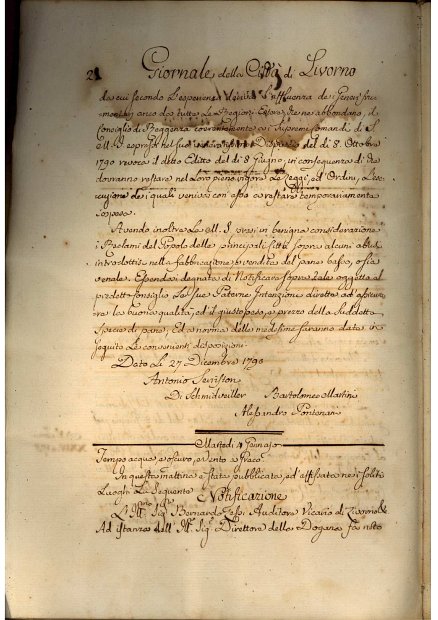 2 Giornale della Città di Livorno
da cui secondo l'esperienza deriva l'influenza de' Generi
anco da tutte le Regioni Estere, che ne abbondano, il
Consiglio di Reggenza coerentemente ai Supremi Comandi di S.
M. R. espressi nel suo Dispaccio del dì 8. Ottobre
1790 revoca il detto Editto del dì 8 Giugno, in conseguenza di che
dovranno restare nel Loro pieno vigore Le Leggi, ed Ordini, L'ese-
cuzione de' quali veniva con esso a restare temporariamente
sospesa.
Avendo inoltre La M. S. presi in benigna considerazione
i Reclami del Popolo delle principali Città sopra alcuni abusi
introdotti nella fabbricazione, e vendita del pane basso, o sia
venale. Essendosi degnata di Notificare sopra tale oggetto al
predetto Consiglio Le sue Paterne Intenzioni dirette ad assicura-
re la buona qualità, ed il giusto peso, e prezzo della suddetta
Specie di pane. Ed a norma delle medesime saranno date in
seguito Le convenienti disposizioni.
Dato Li 27 Dicembre 1790
Antonio Serristori
Di Schmidveiller Bartolomeo Martini
Alessandro Pontenani
Martedì 4 Gennajo
Tempo acqua, e oscuro, e vento a Greco
In questa mattina è stata pubblicata, ed affissata nei soliti
Luoghi La Seguente
Notificazione
L'Ill.mo Sig. Bernardo Auditore Vicario di Livorno &
Ad istanza dell' Ill. Sig. Direttore della Dogana fa noto